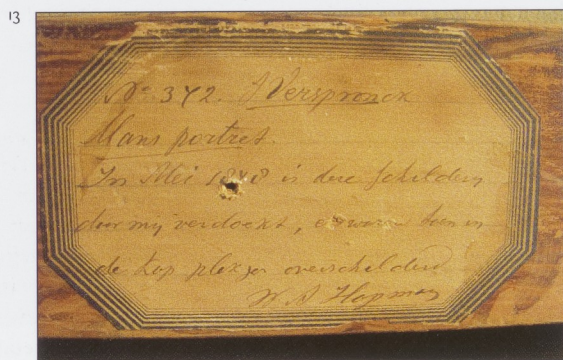 13
No 372. Verspronck
Mans portret.
In Mei is deze schilderij
door mij verdoekt, er waren toen in
de kop plekjes overschilderd
W. A Hopman